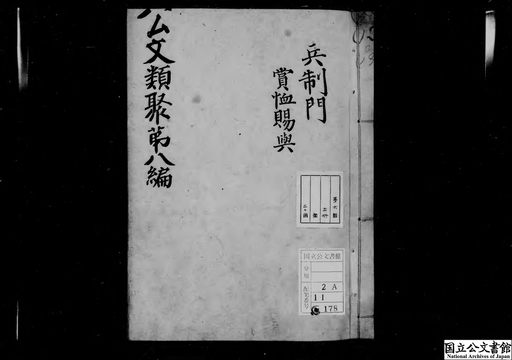 兵制門
賞恤賜與
公文類聚第八編
国立公文書館
分類
配架番号
2 A
11
178
国立公文書館
National Archives of Japan